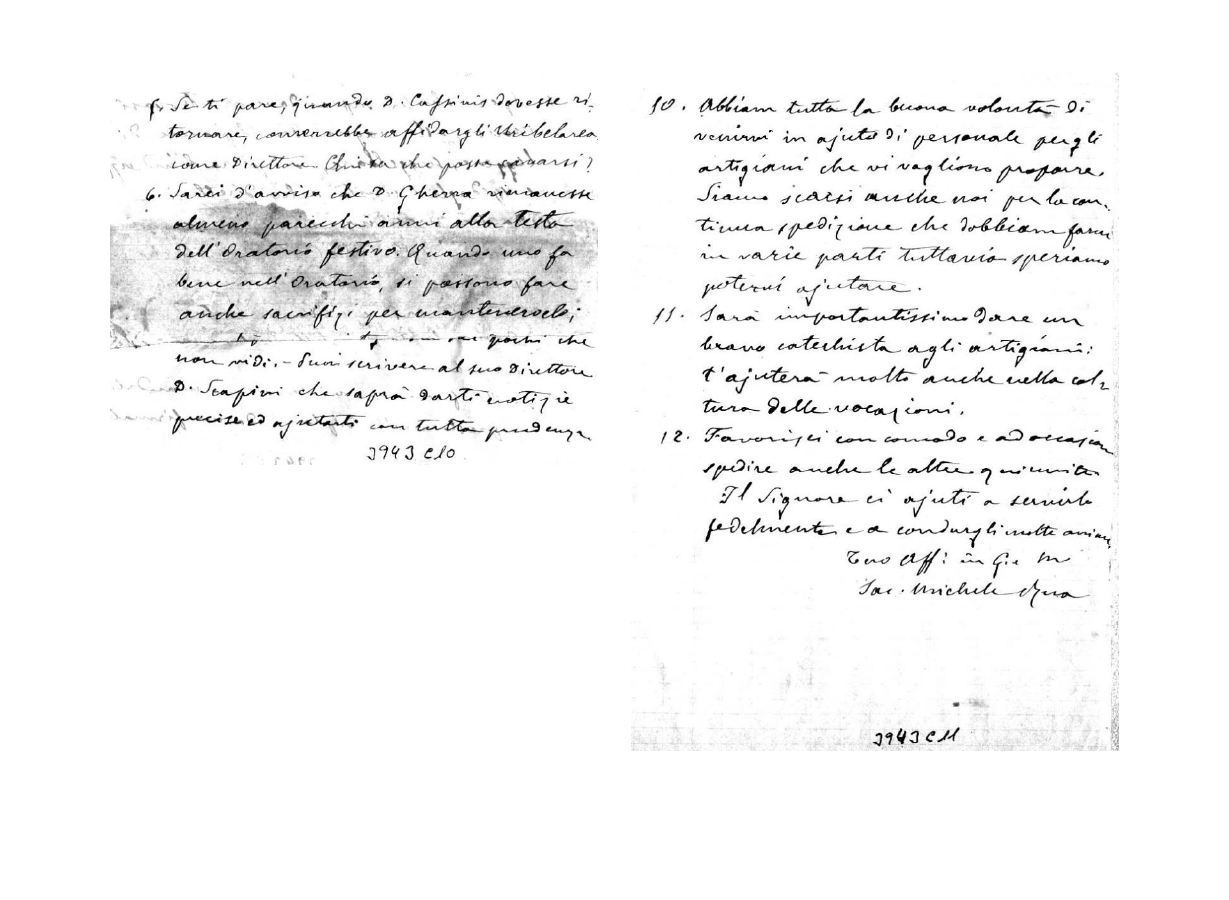 5. Se ti pare, quando D. Cassinis dovesse ri-
tornare, converrebbe affidargli Uribelarea
come Direttore. Chi sa che possa
6. Sarei d'avviso che D. Gherra rimanesse
almeno parecchi anni alla testa
dell'Oratorio festivo. Quando uno fa
bene nell'Oratorio, si possono fare
anche sacrifizi per mantenervelo;
pochi che
non vidi. - Puoi scrivere al suo Direttore
D. Scapini che saprà darti notizie
precise ed ajutarti con tutta prudenza.
3943 C10
10. Abbiam tutta la buona volontà di
venirvi in ajuto di personale per gli
artigiani che vi vogliono proporre.
Siamo scarsi anche noi per la con-
tinua spedizione che dobbiam farne
in varie parti tuttavia speriamo
potervi ajutare.
11. Sarà importantissimo dare un
bravo catechista agli artigiani:
t'ajuterà molto anche nella col-
tura delle vocazioni.
12. Favorisci con comodo e ad occasion
spedire anche le altre qui unite
Il Signore ci ajuti a servirlo
fedelmente e a condurgli molte anime.
Tuo Aff. in G. e M.
Sac. Michele Rua
3943 C11